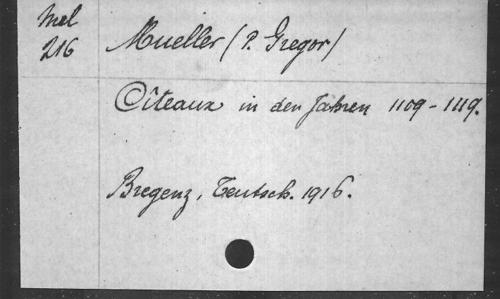 Mel
216
Mueller (P. Gregor)
Cîteaux in den Jahren 1109-1119.
Bregenz, Teutsch. 1916.